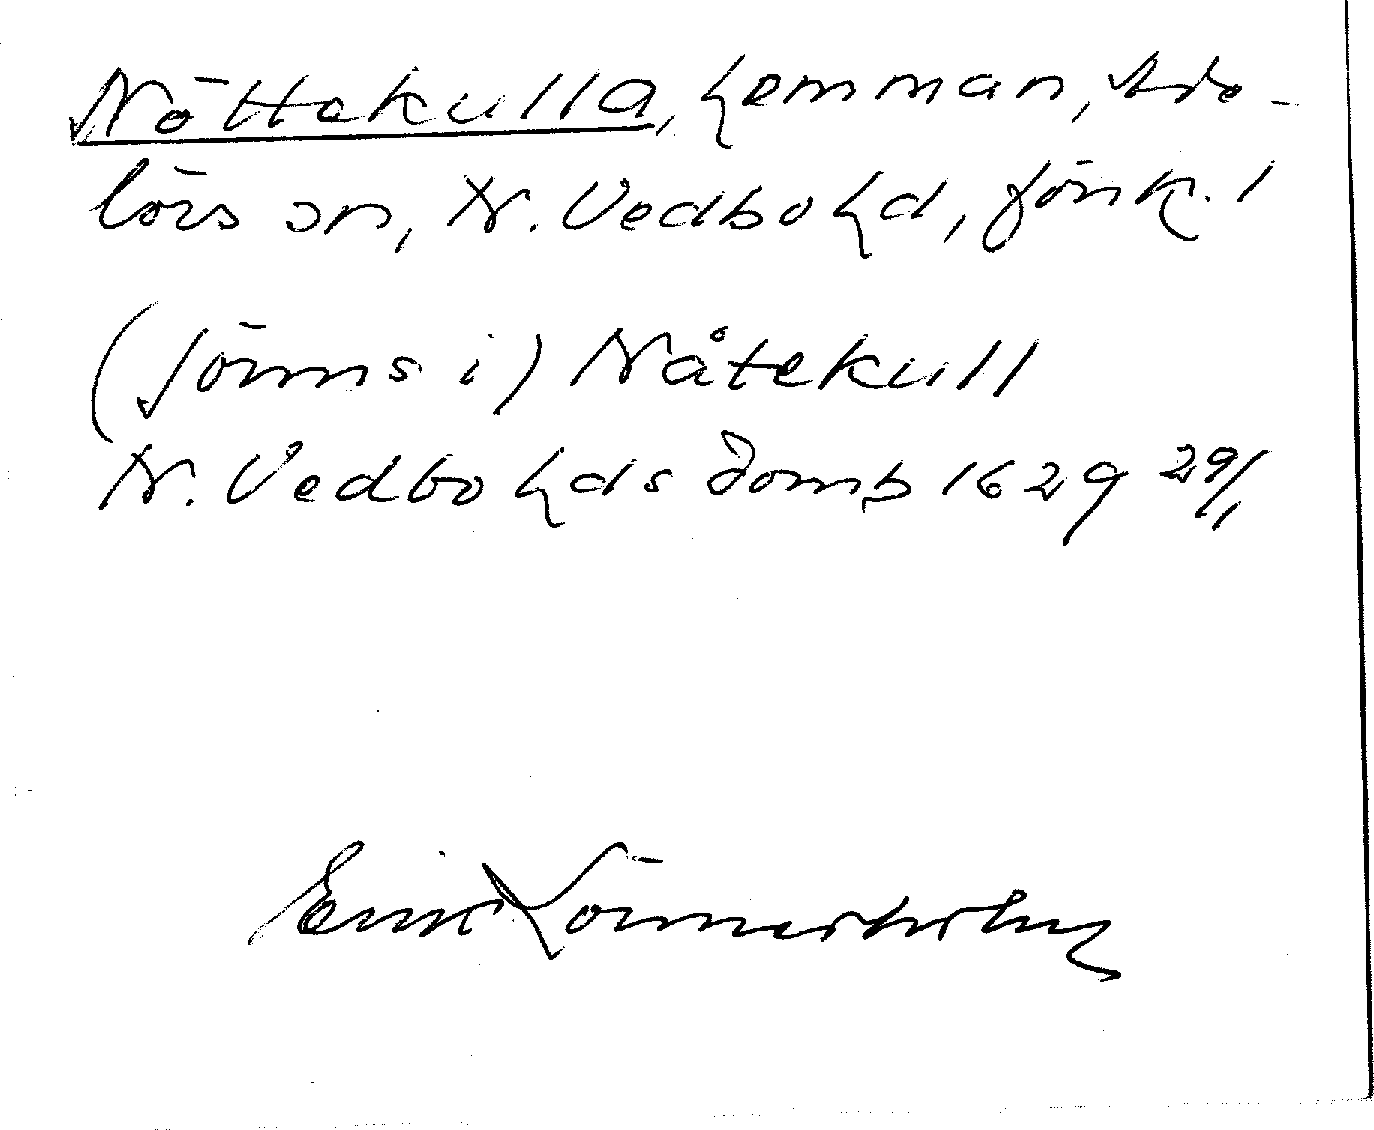 Nöttekulla, hemman, Bredo-
lörs sn, N. Vedbo hd, Jönk. l
(Jöns i) Nåtekull
N. Vedbo hds domb 1629 29/1
Erik Lönnerholm